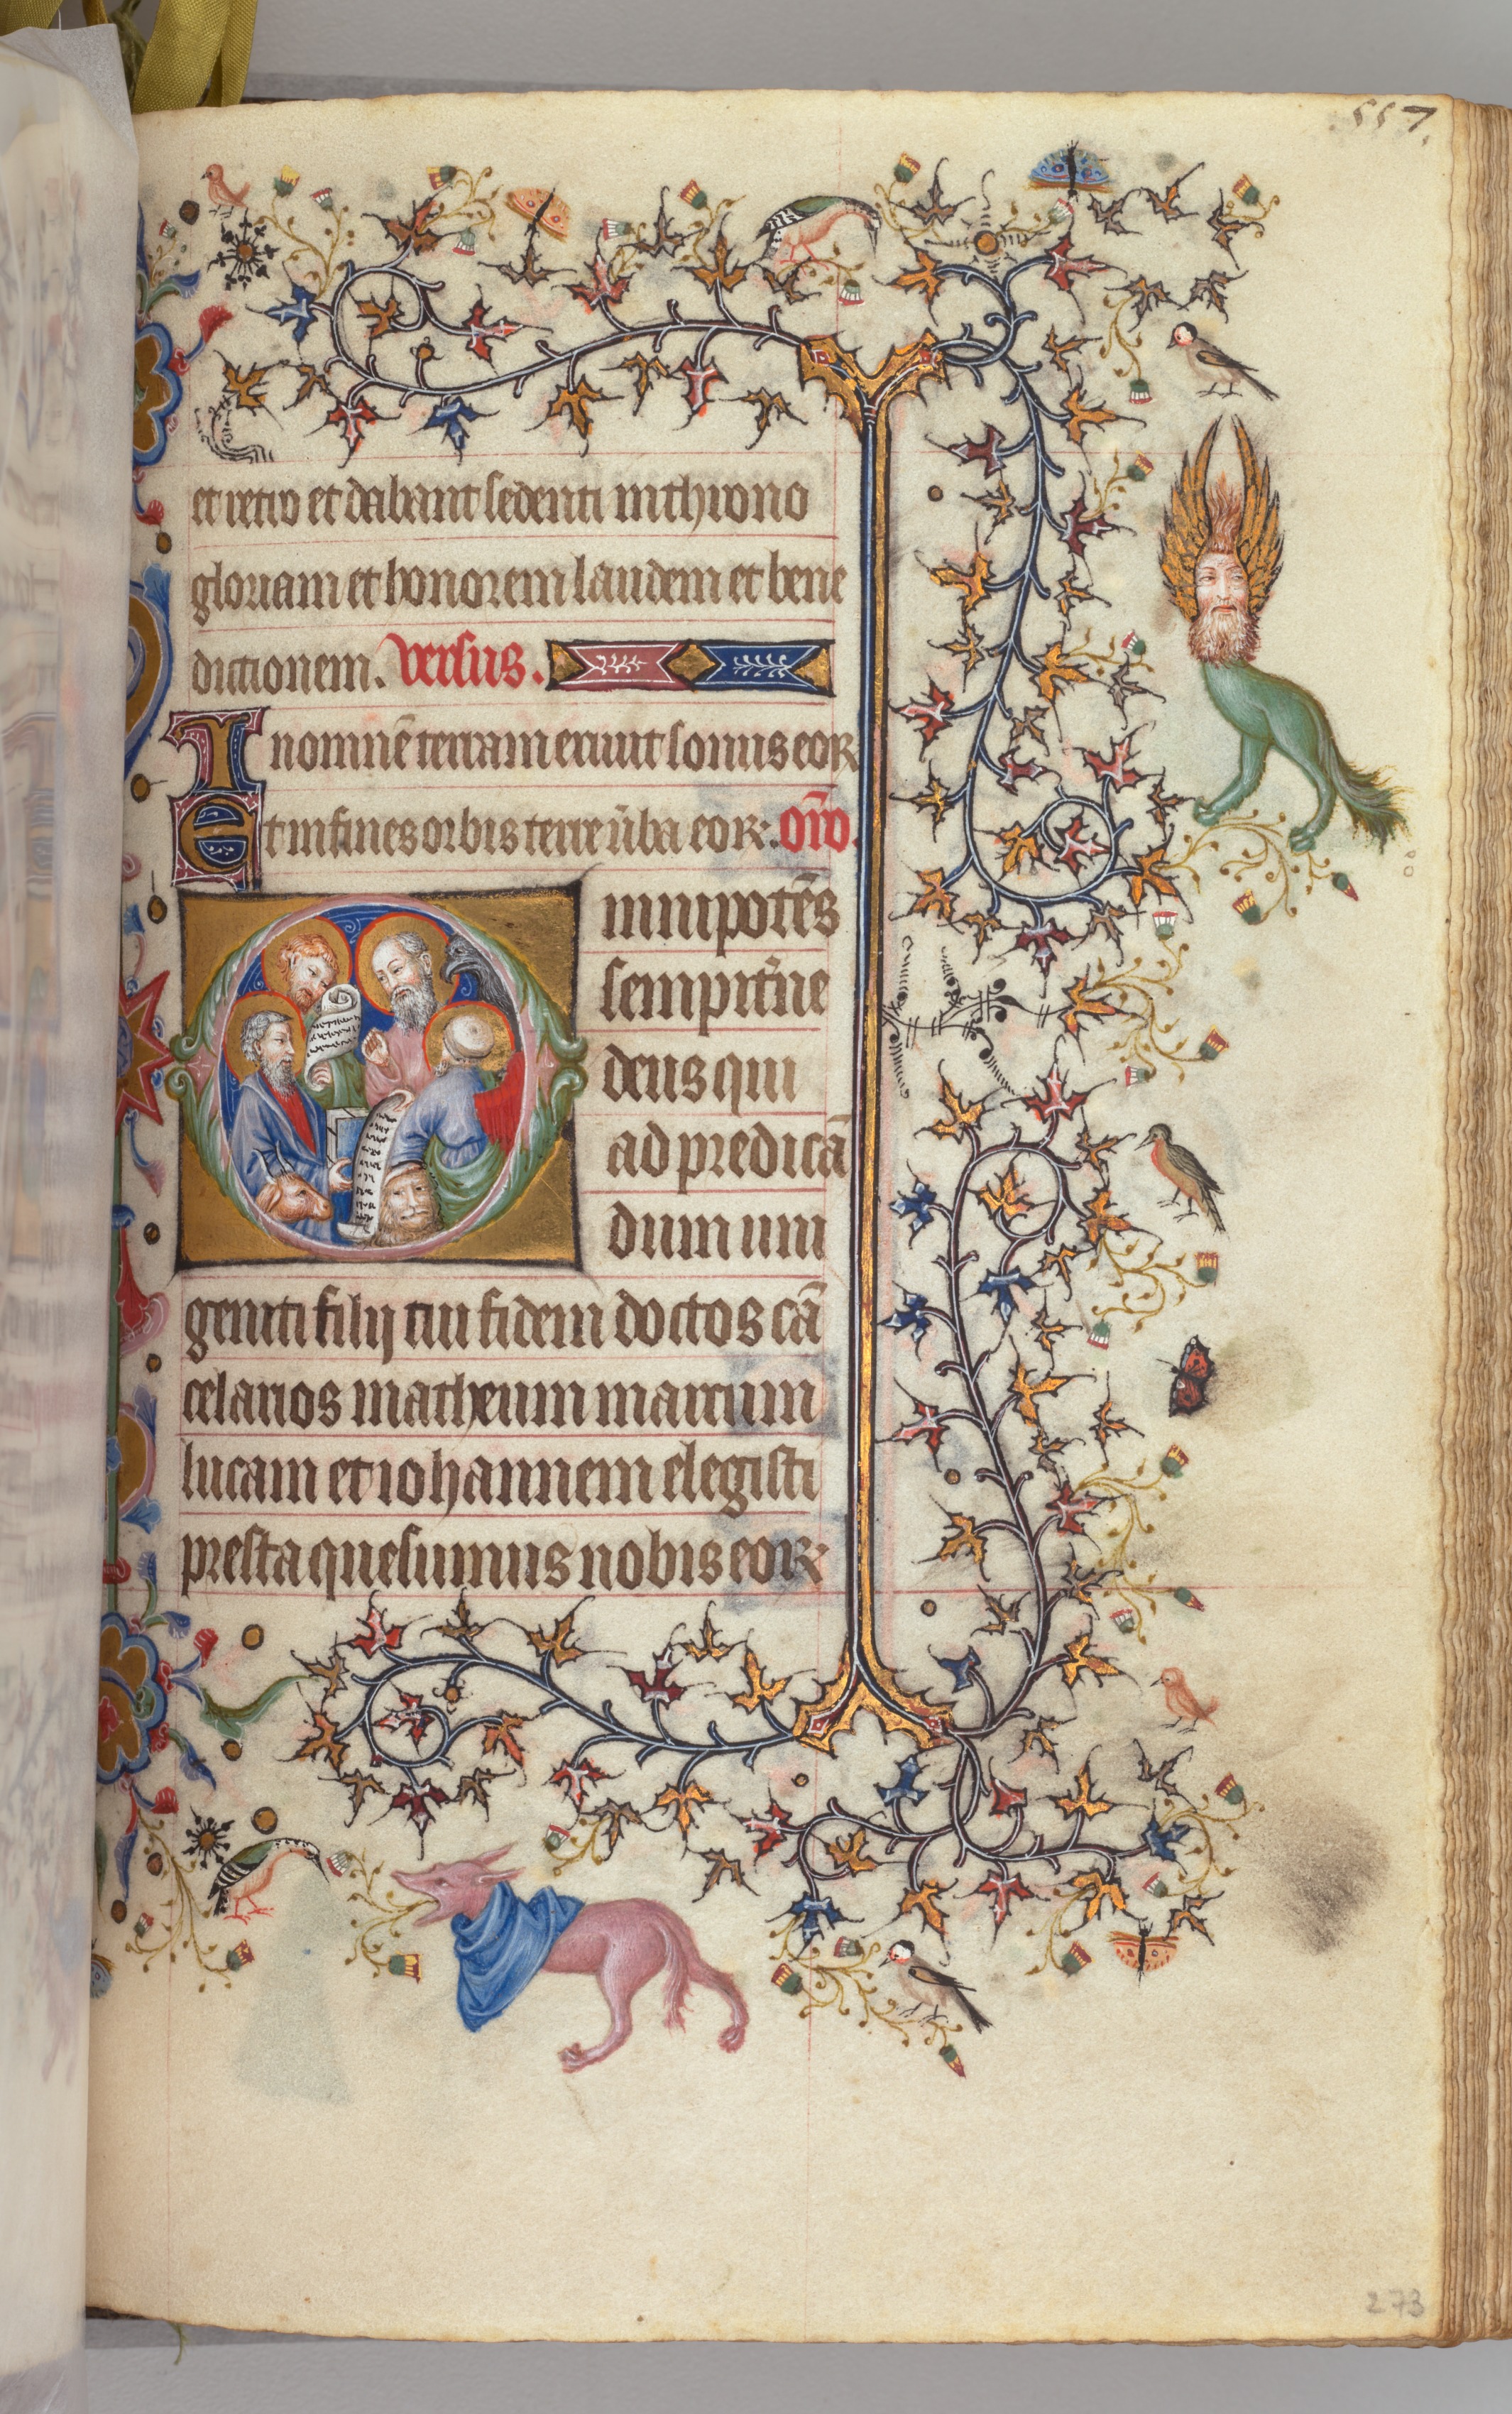 557.
et retro et dabant sedenti in throno
gloriam et honorem laudem et bene
dictionem. versus.
In omnē terram exiuit sonus eoꝝ
et in fines orbis terre ūba eoꝝ. oīo.
Omnipotēs
sempit̄ne
deus qui
ad predicā
dum uni
geniti filij tui fidem doctos cā
celarios matheum marcum
lucam et iohannem elegisti
presta quesumus nobis eoꝝ
273